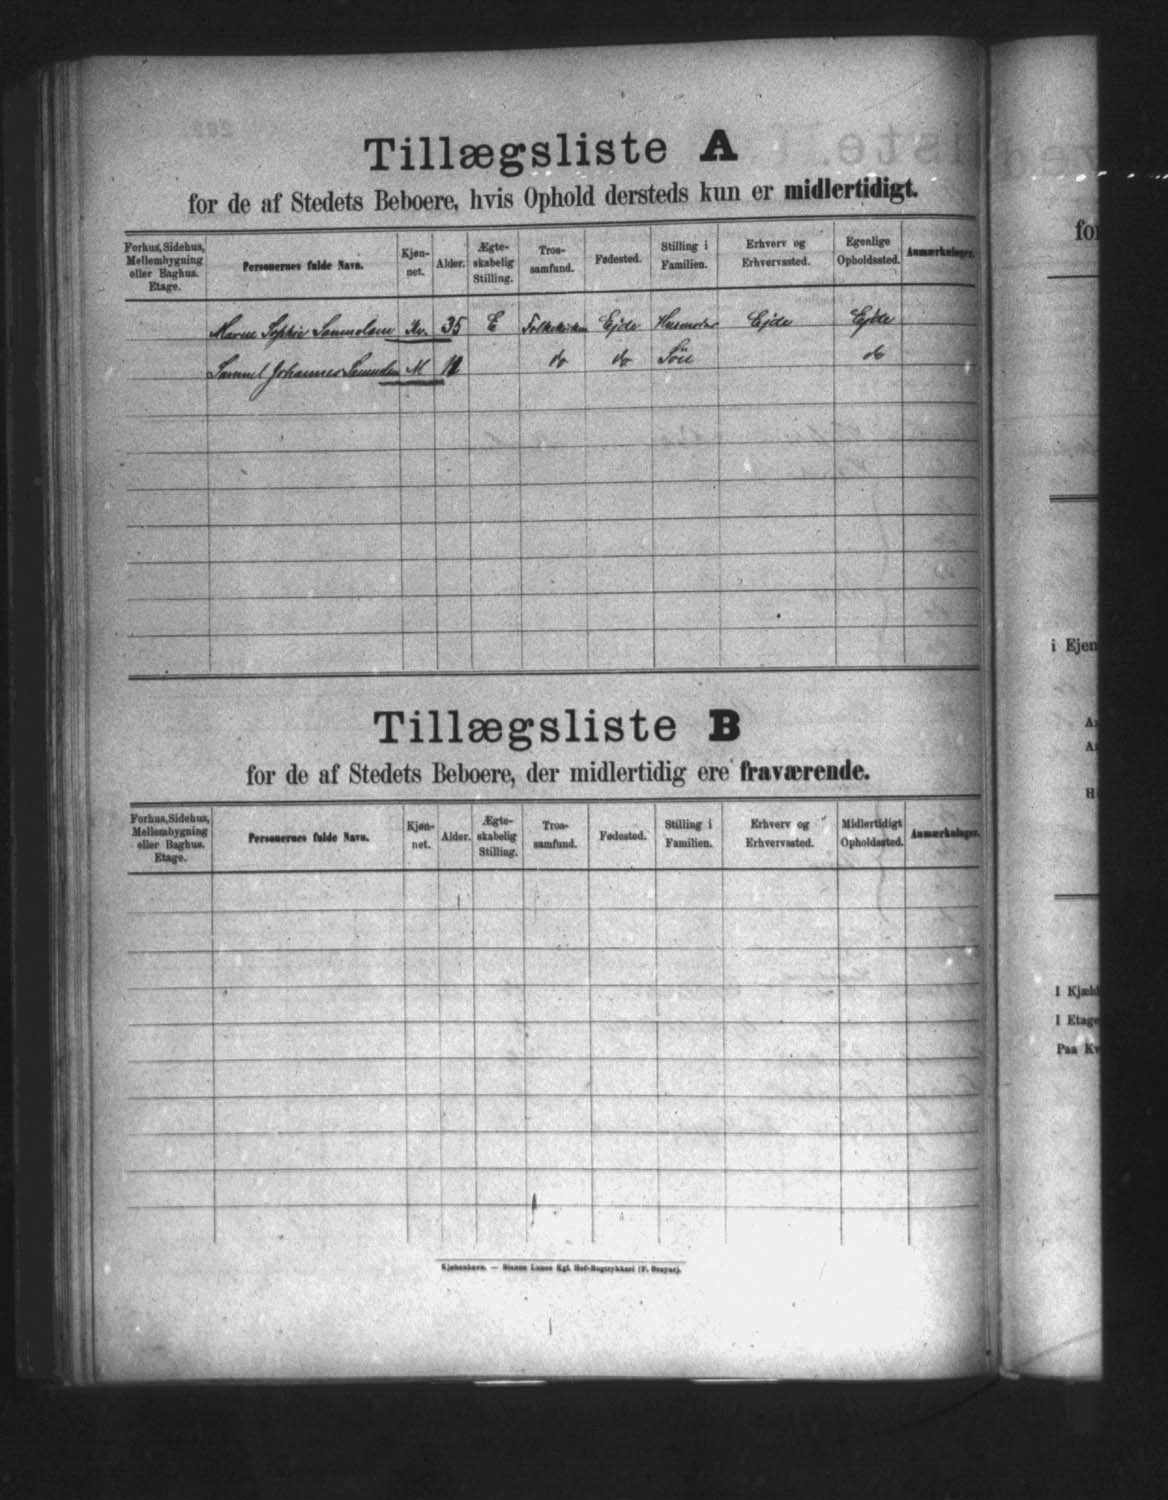 Tillægsliste A
for de af Stedets Beboere, hvis Ophold dersteds kun er midlertidigt.
Forhus, Sidehus, Mellembygning eller Baghus. Etage. Personernes fulde Navn. Kjøn-net. Alder. Ægte-skabelig Stilling. Tros-samfund. Fødested. Stilling i Familien. Erhverv og Erhvervssted. Egenlige Opholdssted. Anmærkninger.
Maren Sophie Samuelsen Kv. 35 E Folkekirken Ejde Husmoder Ejde Ejde
Samuel Johannes M do do Sön do
Tillægsliste B
for de af Stedets Beboere, der midlertidig ere fraværende.
Forhus, Sidehus, Mellembygning eller Baghus. Etage. Personernes fulde Navn. Kjøn-net. Alder. Ægte-skabelig Stilling. Tros-samfund. Fødested. Stilling i Familien. Erhverv og Erhvervssted. Midlertidigt Opholdssted. Anmærkninger.
Kjøbenhavn. — Bianco Lunos Kgl. Hof-Bogtrykkeri (F. Dreyer).
fo
i Ejen
A
A
H
I Kjæld
I Etage
Paa Kv